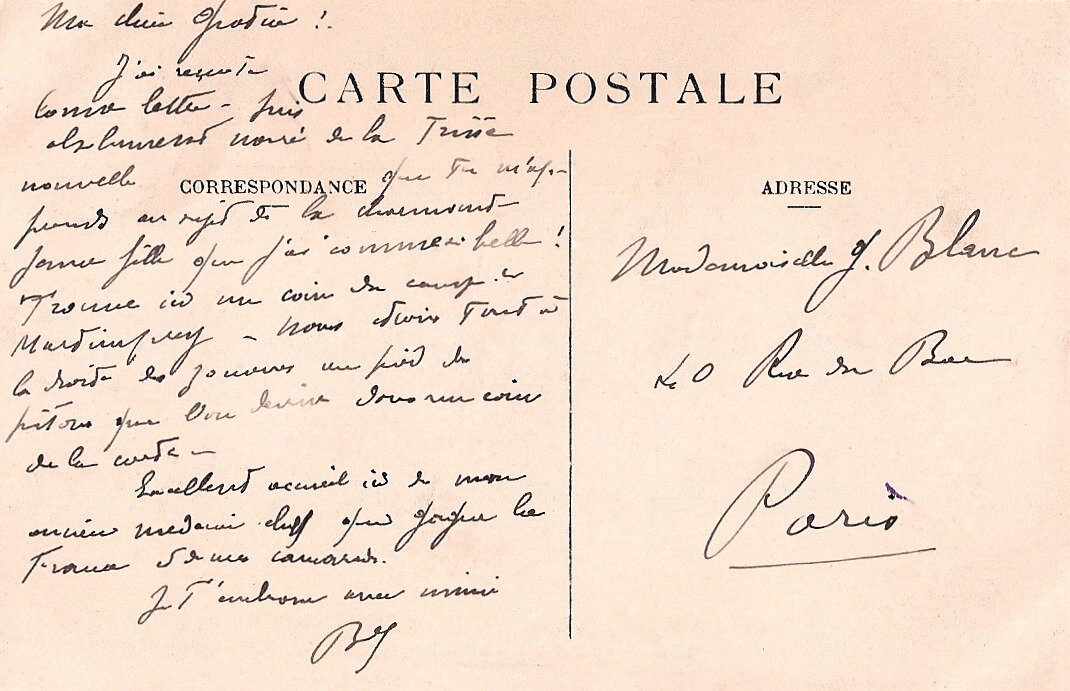 Ma chère
J'ai reçu ta
CARTE POSTALE
bonne lettre - suis
absolument navré de la triste
nouvelle que tu m'ap-
CORRESPONDANCE
prends au sujet de la charmante
jeune fille que j'ai connue si belle !
ADRESSE
Mademoiselle J. Blanc
Trouve ici un coin du camp
- Nous étions tout à
la droite des au pied du
piton que l'on devine dans un coin
40 Rue du Bac
de la carte -
Excellent accueil ici de mon
Paris
ancien médecin chef que gagne la
France et de mes camarades.
Je t'embrasse avec mimi